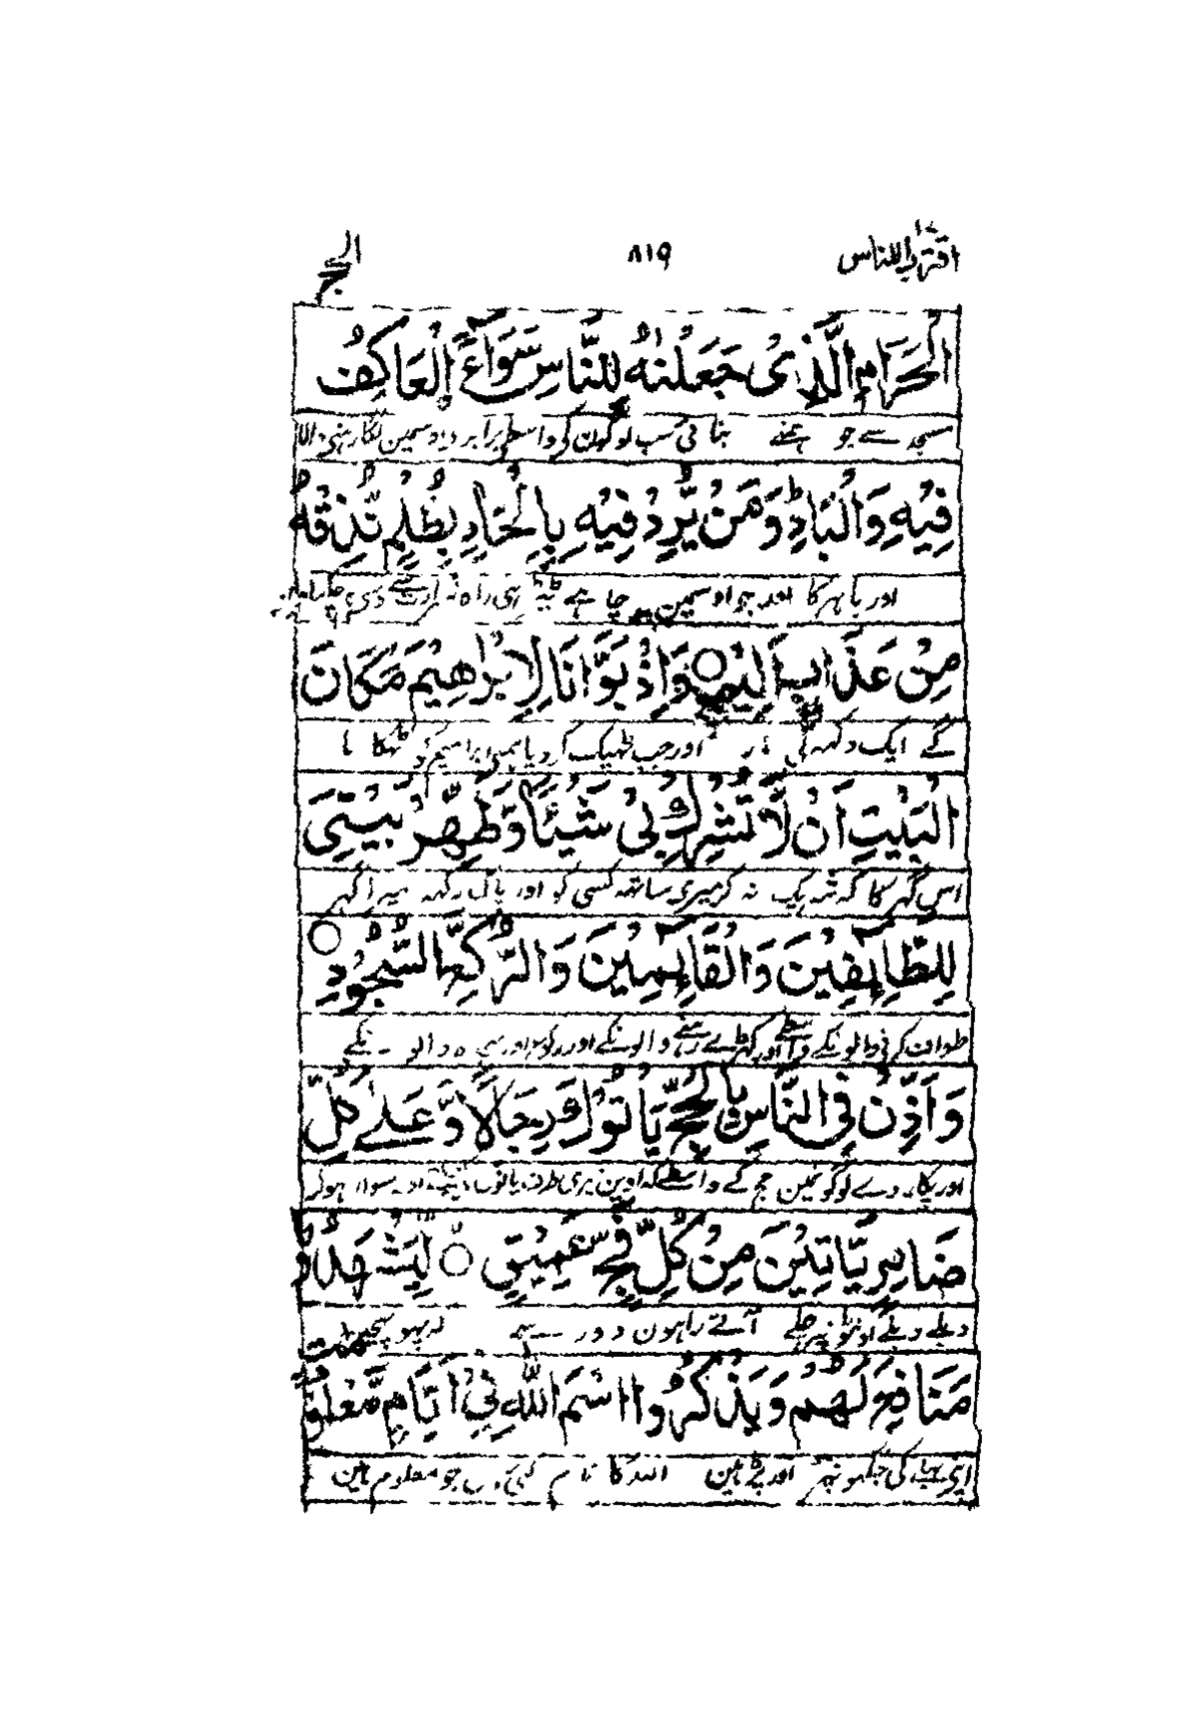 اقترب للناس ١٧ ٨١٩ الحج
الْحَرَامِ الَّذِیْ جَعَلْنٰهُ لِلنَّاسِ سَوَآءَ اِۨلْعَاكِفُ
مسجد سے جو ہمنے بنائی سب لوگون کی واسطے برابر ہی اوسمین لگا رہنی والا
فِیْهِ وَالْبَادِ وَمَنْ یُّرِدْ فِیْهِ بِاِلْحَادٍ بِظُلْمٍ نُّذِقْهُ
اور باہر کا اور جو اوسمین چاہے ٹیڑہی راہ شرارت سے
مِنْ عَذَابٍ اَلِیْمٍ ○ وَاِذْ بَوَّاْنَا لِاِبْرٰهِیْمَ مَكَانَ
گے ایک دکہہ کی مار اور جب ٹھیک کر دیا ہمنی ابراہیم کو ٹھکانا
الْبَیْتِ اَنْ لَّا تُشْرِكْ بِیْ شَیْئًا وَّطَهِّرْ بَیْتِیَ
اس گہر کا کہ شریک نہ کر میری ساتھہ کسی کو اور پاک رکہہ میرا گہر
لِلطَّآئِفِیْنَ وَالْقَآئِمِیْنَ وَالرُّكَّعِ السُّجُوْدِ ○
طواف کرنی والونکے واسطے اور کہڑے رہنے والونکے اور رکوع اور سجدہ والونکے
وَاَذِّنْ فِی النَّاسِ بِالْحَجِّ یَاْتُوْكَ رِجَالًا وَّعَلٰى كُلِّ
اور پکار دے لوگونمین حج کے واسطے کہ اوین تیری طرف پانون چلتے اور سوار ہوکر
ضَامِرٍ یَّاْتِیْنَ مِنْ كُلِّ فَجٍّ عَمِیْقٍ ○ لِیَشْهَدُوْا
دبلے دبلے اونٹونپر چلے آتے راہون دور سے کہ پہونچین
مَنَافِعَ لَهُمْ وَیَذْكُرُوا اسْمَ اللّٰهِ فِیْ اَیَّامٍ مَّعْلُوْمٰتٍ
اپنی بہلے کی جگہونپر اور پڑہین اللہ کا نام کئی دن جو معلوم ہین